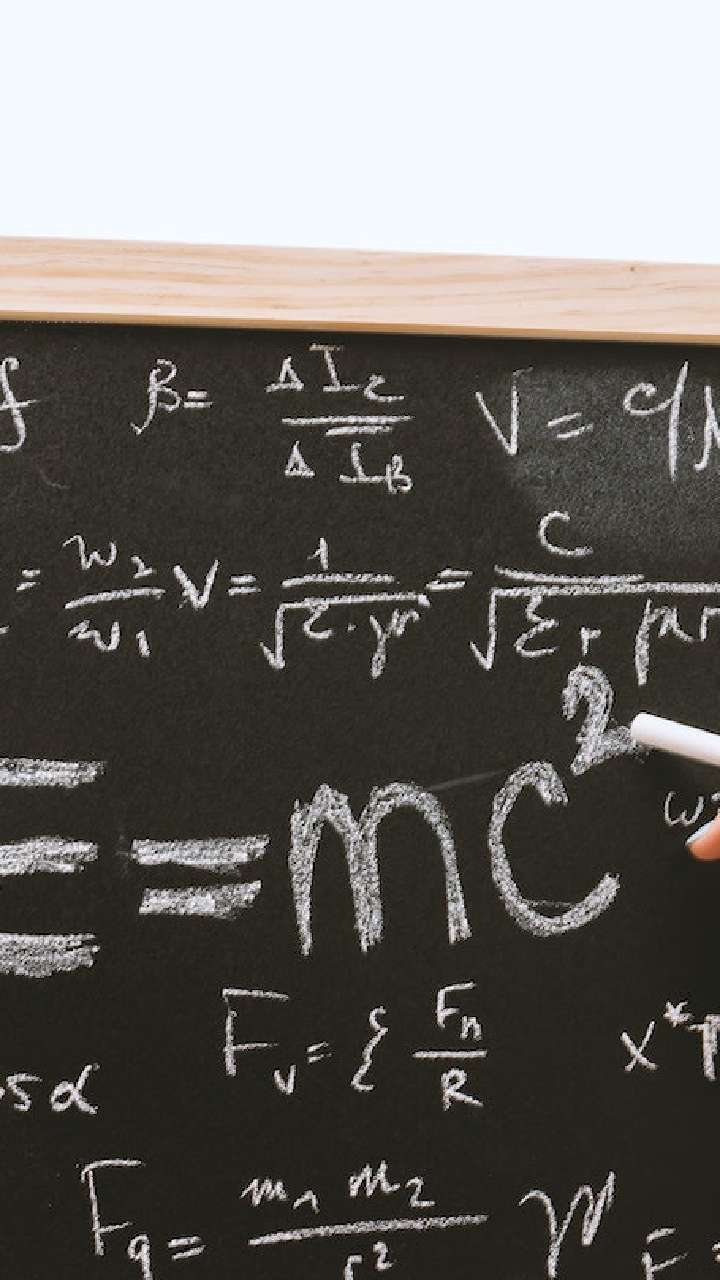 f β= ΔI_C / ΔI_B V=
= w₂ / w₁ V= 1 / √ε·μ = C / √εr μr
E=mc²
F_v= { F_n / R x*
sα
F_g= m₁ m₂ / r²